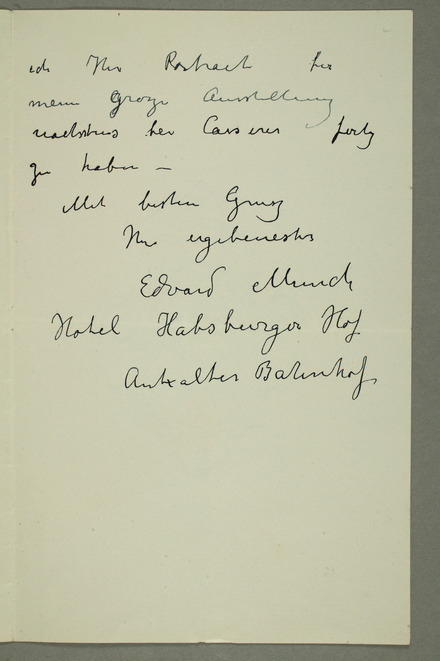 ich Ihr Portraet für
meine grosze Ausstellung
nächstens bei Cassirer fertig
zu haben –
Mit besten Grusz
Ihr ergebenester
Edvard Munch
Hotel Habsburger Hof
Anhalter Bahnhof